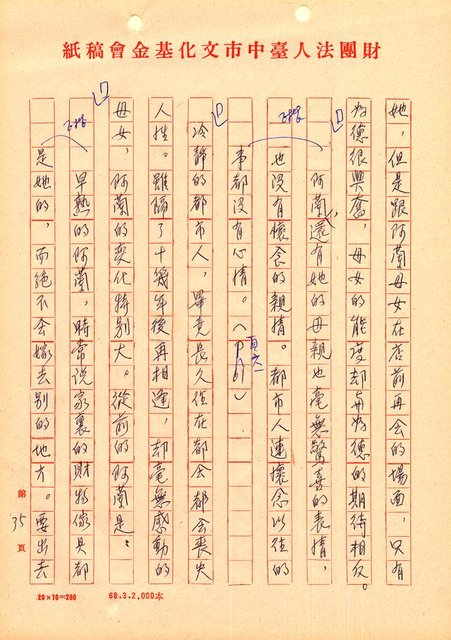 財團法人臺中市文化基金會稿紙
她，但是跟阿蘭母女在店前再会的場面，只有
為德很興奮，母女的態度却与為德的期待相反。
阿蘭還有她的母親也毫無驚喜的表情，
也没有懷念的親情。都市人連懷念以往的
事都没有心情。（P61）
頁六一
冷静的都市人，畢竟長久住在都会都会喪失
人性。雖隔了十幾年後再相逢，却毫無感動的
母女，阿蘭的変化特別大。從前的阿蘭是：
早熟的阿蘭，時常説家裏的財物傢具都
是她的，而絕不会嫁去别的地方。要出去
第35頁
20×10=200
68.3.2,000本